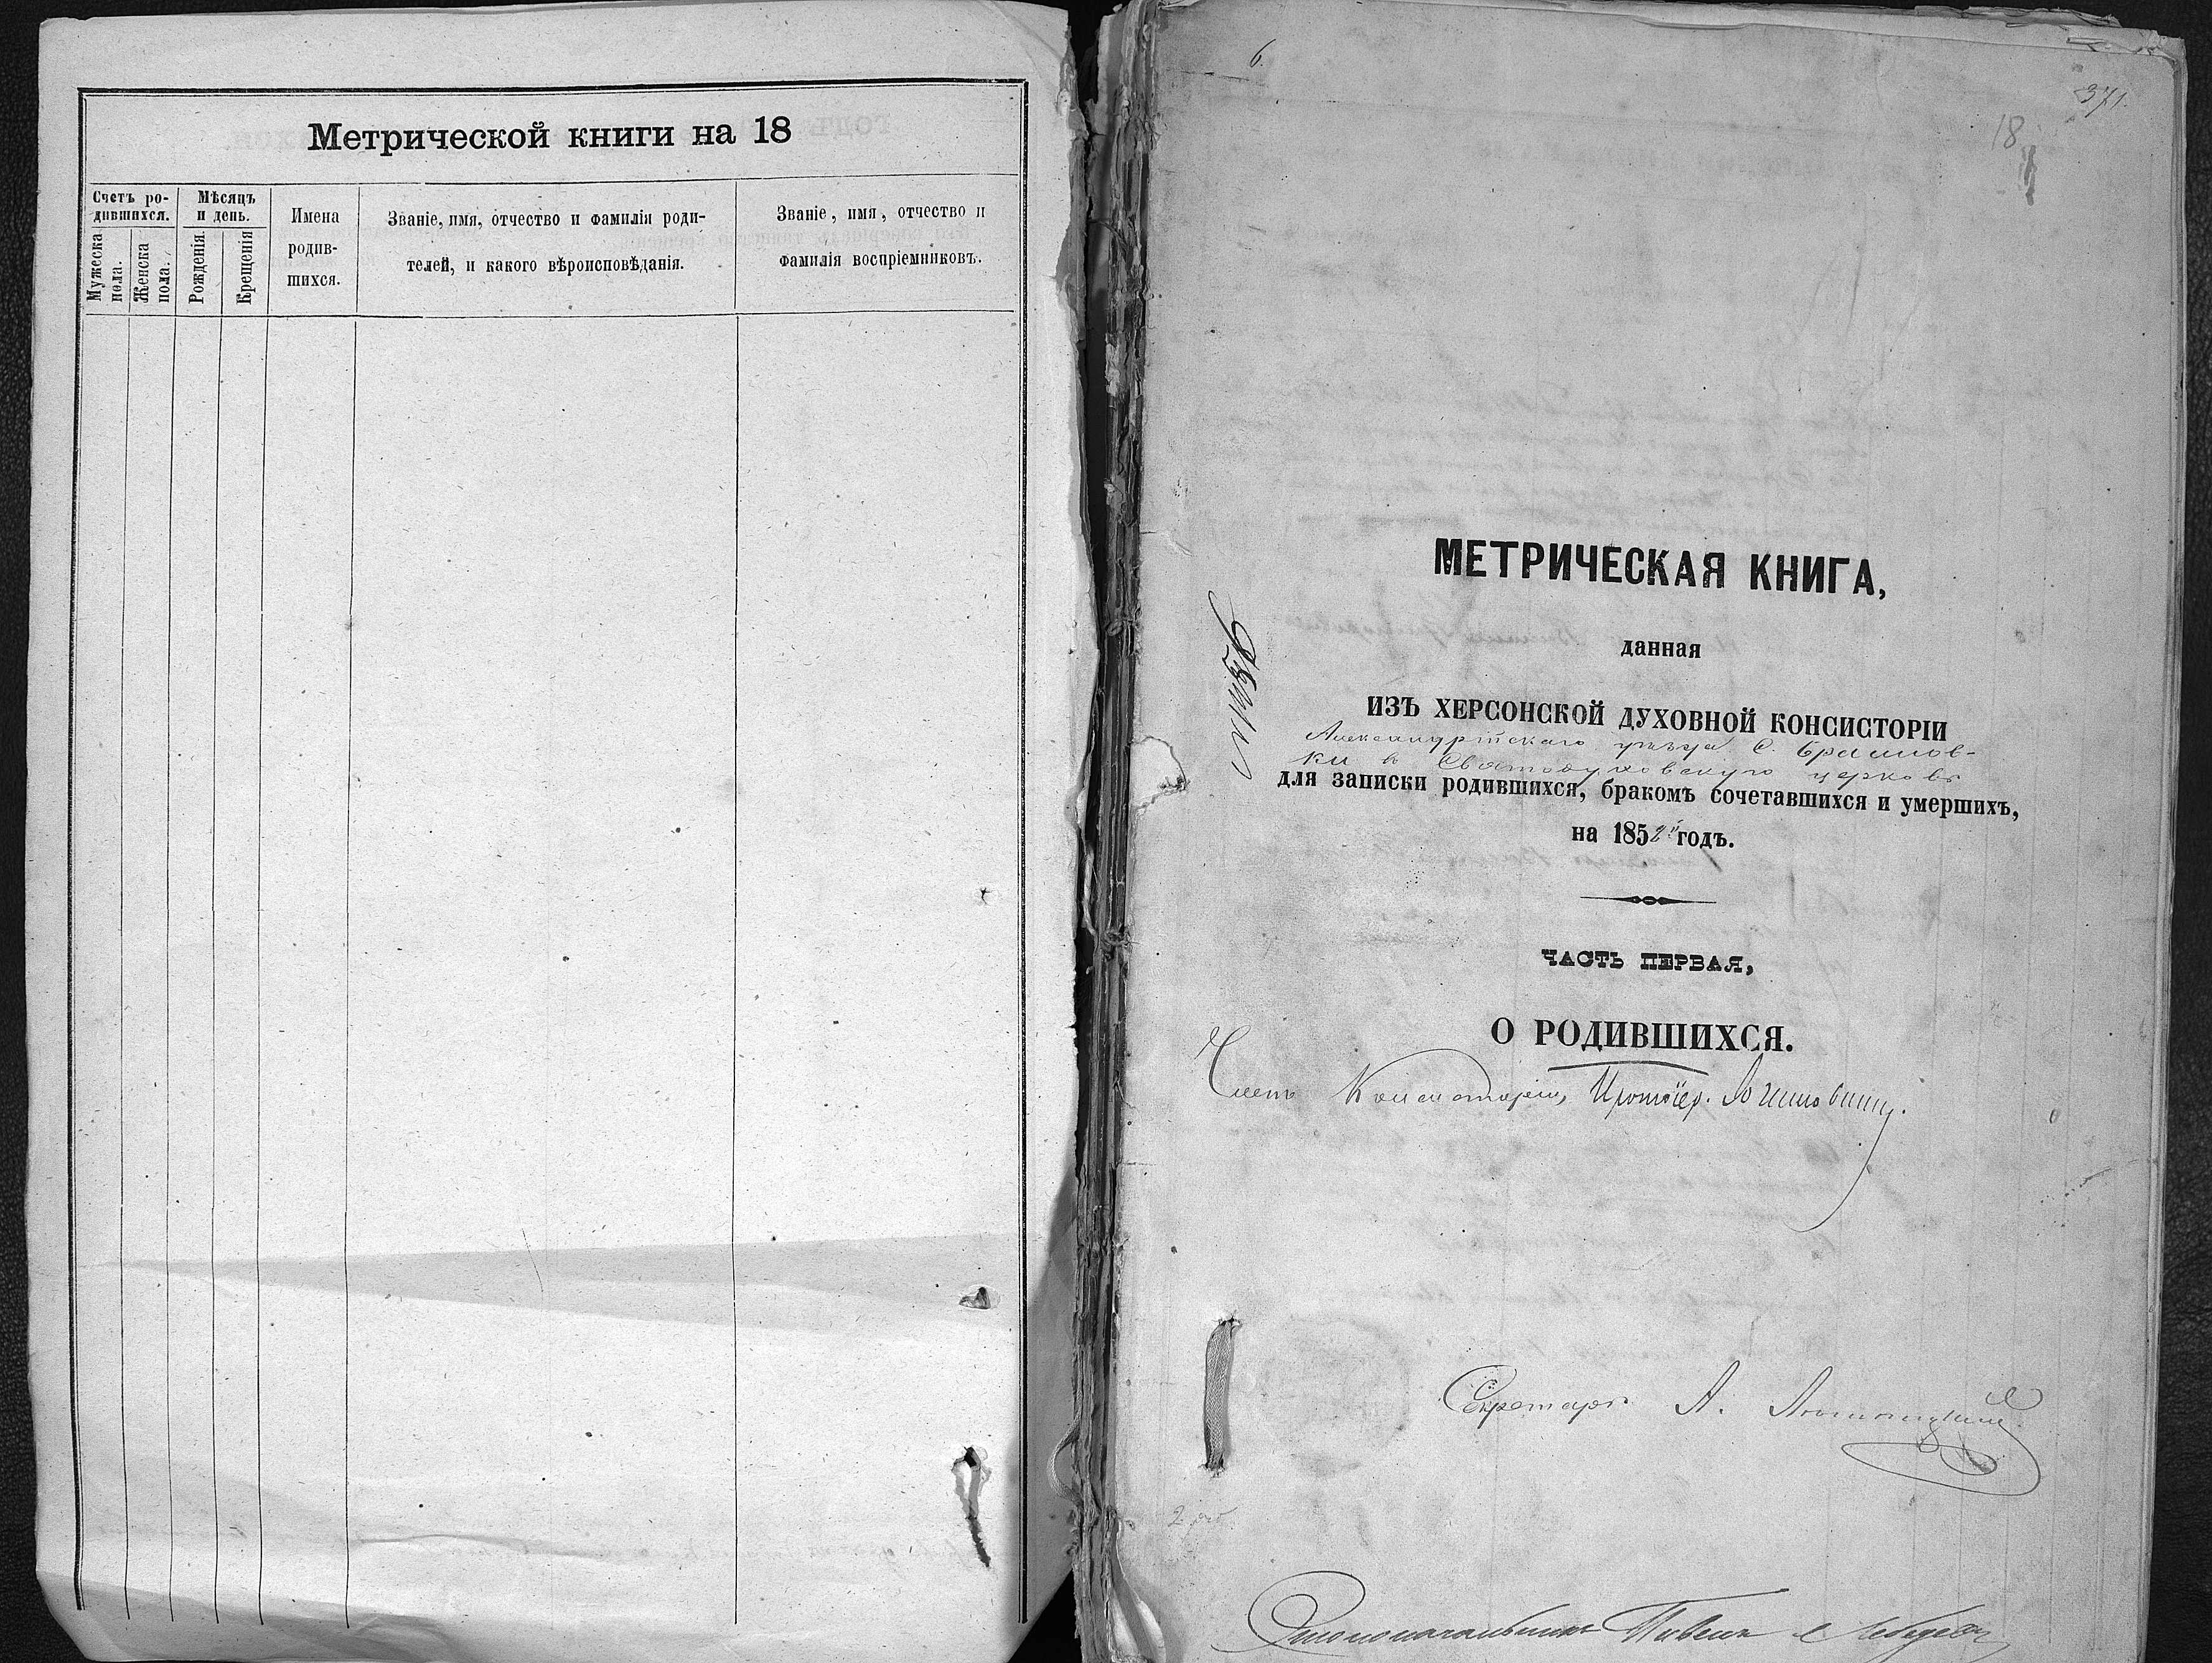 Метрической книги на 18
Счетъ ро-
дившихся.
Мѣсяцъ
и день.
Мужеска
пола.
Женска
пола.
Рожденія.
Крещенія
Имена
родив-
шихся.
Званіе, имя, отчество и фамилія роди-
телей, и какого вѣроисповѣданія.
Званіе, имя, отчество и
фамилія воспріемниковъ.
6.
371.
18
МЕТРИЧЕСКАЯ КНИГА,
данная
ИЗЪ ХЕРСОНСКОЙ ДУХОВНОЙ КОНСИСТОРІИ
Александрійскаго уѣзда С.
ки въ Святодуховскую церковь
для записки родившихся, бракомъ сочетавшихся и умершихъ,
на 1852й годъ.
ЧАСТЬ ПЕРВАЯ,
О РОДИВШИХСЯ.
Членъ Консисторіи, Протоіер.
Секретарь А.
Столоначальникъ